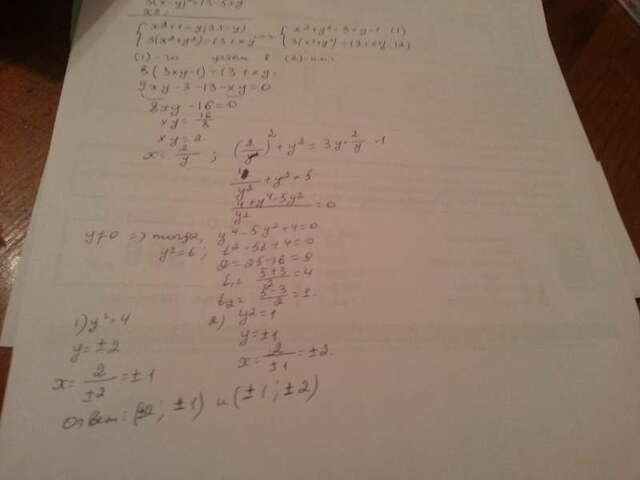 3(x-y)²=13-5xy
x²+1=y(3x-y) x²+y²=3xy-1 (1)
3(x²+y²)=13+xy 3(x²+y²)=13+xy (2)
(1)-го (2)-
3(3xy-1)=13+xy
9xy-3-13-xy=0
8xy-16=0
xy=16/8
xy=2
x=2/y ; (2/y)²+y²=3y·2/y-1
4/y²+y²=5
(4+y⁴-5y²)/y²=0
y≠0 => тогда, y⁴-5y²+4=0
y²=t; t²-5t+4=0
D=25-16=9
t₁=(5+3)/2=4
t₂=(5-3)/2=1
1) y²=4 2) y²=1
y=±2 y=±1
x=2/±2=±1 x=2/±1=±2.
Ответ: (±2; ±1) и (±1; ±2)